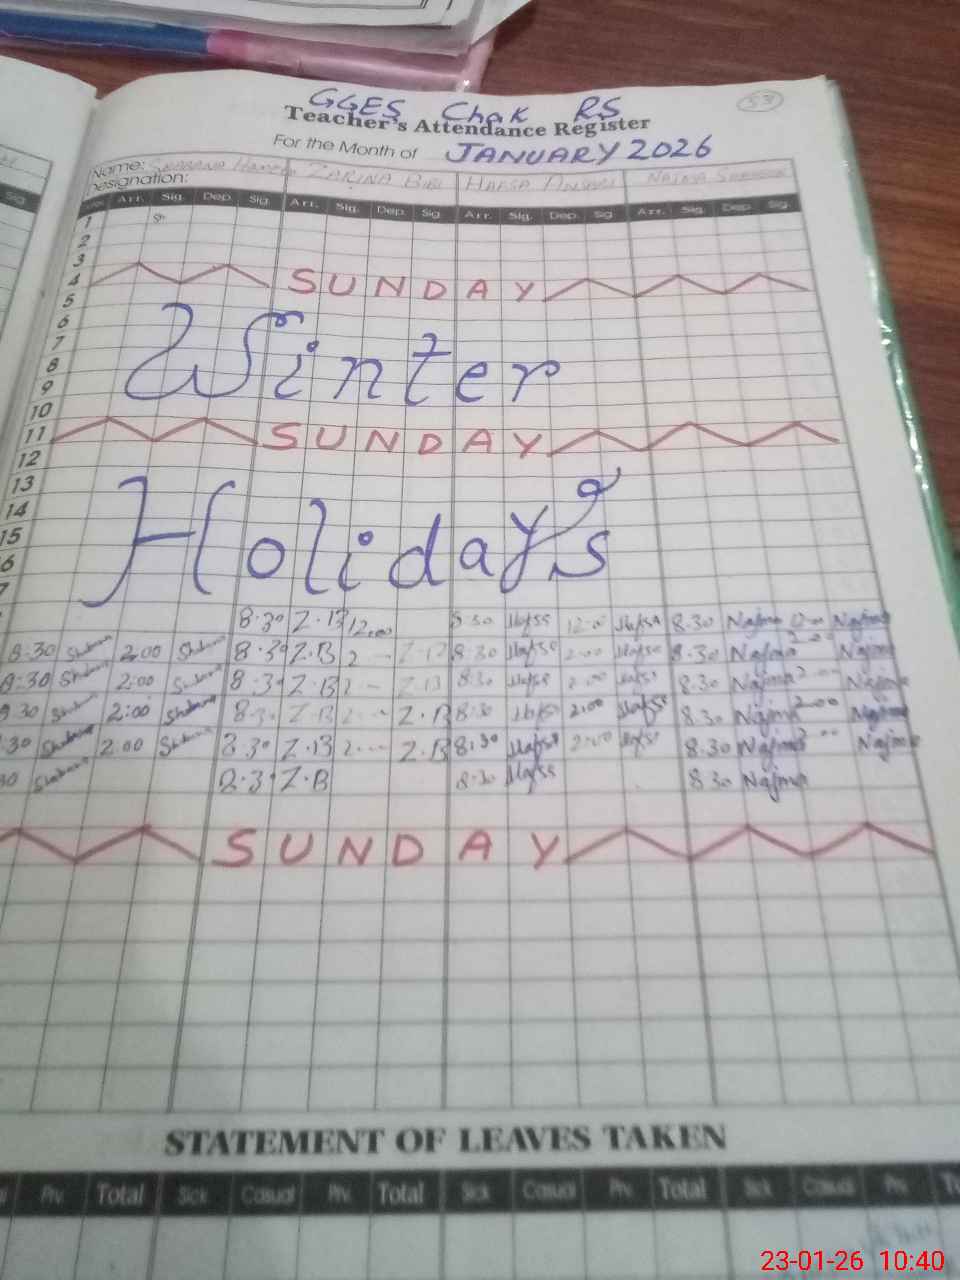 53
GGES Chak RS
Teacher's Attendance Register
For the Month of JANUARY 2026
Name: ZARINA BIBI HAFSA
Designation:
Arr. Sig. Dep. Sig. Arr. Sig. Dep. Sig. Arr. Sig. Dep. Sig. Arr. Sig. Dep. Sig.
1 Sh
2
3
4 SUNDAY
5
6
7
8 Winter
9
10
11 SUNDAY
12
13
14
15 Holidays
6
7
8.30 Z.B 12.00 8.30 Hafsa 12.00 Hafsa 8.30 Najma Najma
8:30 Shabana 2:00 Shabana 8.30 Z.B 2 Z.B 8.30 Hafsa 2.00 Hafsa 8.30 Najma 2.00 Najma
8:30 Shabana 2:00 Shabana 8.30 Z.B 2 Z.B 8.30 Hafsa 2.00 Hafsa 8.30 Najma 2.00 Najma
8 30 Shabana 2:00 Shabana 8.30 Z.B 2 Z.B 8.30 Hafsa 2.00 Hafsa 8.30 Najma 2.00 Najma
.30 Shabana 2.00 Shabana 8.30 Z.B 2 Z.B 8.30 Hafsa 2.00 Hafsa 8.30 Najma 2.00 Najma
30 Shabana 8.30 Z.B 8.30 Hafsa 8.30 Najma
SUNDAY
STATEMENT OF LEAVES TAKEN
Prv. Total Sick Casual Prv. Total Sick Casual Prv. Total Sick Casual Prv.
23-01-26 10:40